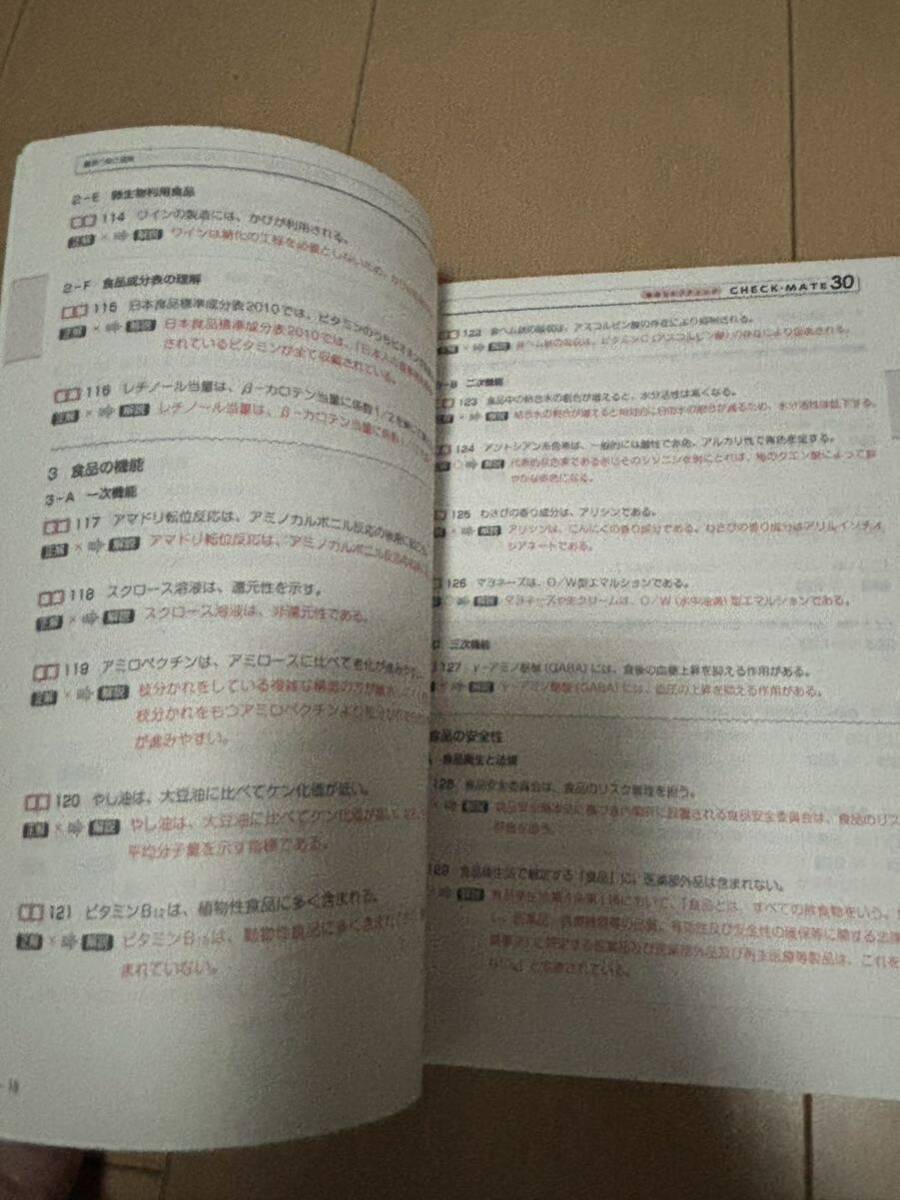 2-E 微生物利用食品
114 ワインの製造には、かびが利用される。
正解 × 解説 ワインは糖化の工程を必要としないため、かび
2-F 食品成分表の理解
115 日本食品標準成分表2010では、ビタミンのうちビオチン
正解 × 解説 日本食品標準成分表2010では、「日本人の
されているビタミンが全て収載されている。
116 レチノール当量は、β-カロテン当量に係数1/2を
正解 × 解説 レチノール当量は、β-カロテン当量に係数
3 食品の機能
3-A 一次機能
117 アマドリ転位反応は、アミノカルボニル反応の
正解 × 解説 アマドリ転位反応は、アミノカルボニル反応の
118 スクロース溶液は、還元性を示す。
正解 × 解説 スクロース溶液は、非還元性である。
119 アミロペクチンは、アミロースに比べて老化が進みやす
正解 × 解説 枝分かれをしている複雑な構造の方が
枝分かれをもつアミロペクチンより
が進みやすい。
120 やし油は、大豆油に比べてケン化価が低い。
正解 × 解説 やし油は、大豆油に比べてケン化価が
平均分子量を示す指標である。
121 ビタミンB12は、植物性食品に多く含まれる。
正解 × 解説 ビタミンB12は、動物性食品に多く含まれ
まれていない。
CHECK・MATE 30
122 非ヘム鉄の吸収は、アスコルビン酸の存在により抑制される。
解説 非ヘム鉄の吸収は、ビタミンC(アスコルビン酸)の存在により促進される。
-B 二次機能
123 食品中の結合水の割合が増えると、水分活性は高くなる。
解説 結合水の割合が増えると相対的に自由水の割合が減るため、水分活性は低下する。
124 アントシアン系色素は、一般的には酸性で赤色、アルカリ性で青色を呈する。
解説 代表的な色素であるしそのシソニンを例にとれば、梅のクエン酸によって鮮
やかな赤色になる。
125 わさびの香り成分は、アリシンである。
× 解説 アリシンは、にんにくの香り成分である。わさびの香り成分はアリルイソチオ
シアネートである。
126 マヨネーズは、O/W型エマルションである。
解説 マヨネーズや生クリームは、O/W(水中油滴)型エマルションである。
三次機能
127 γ-アミノ酪酸(GABA)には、食後の血糖上昇を抑える作用がある。
解説 γ-アミノ酪酸(GABA)には、血圧の上昇を抑える作用がある。
食品の安全性
食品衛生と法規
128 食品安全委員会は、食品のリスク管理を担う。
解説 食品安全基本法に基づき内閣府に設置される食品安全委員会は、食品のリス
評価を担う。
129 食品衛生法で規定する「食品」に、医薬部外品は含まれない。
解説 食品衛生法第4条第1項において、「食品とは、すべての飲食物をいう。
し、医薬品、医療機器等の品質、有効性及び安全性の確保等に関する法律
に規定する医薬品及び医薬部外品及び再生医療等製品は、これを
と定義されている。